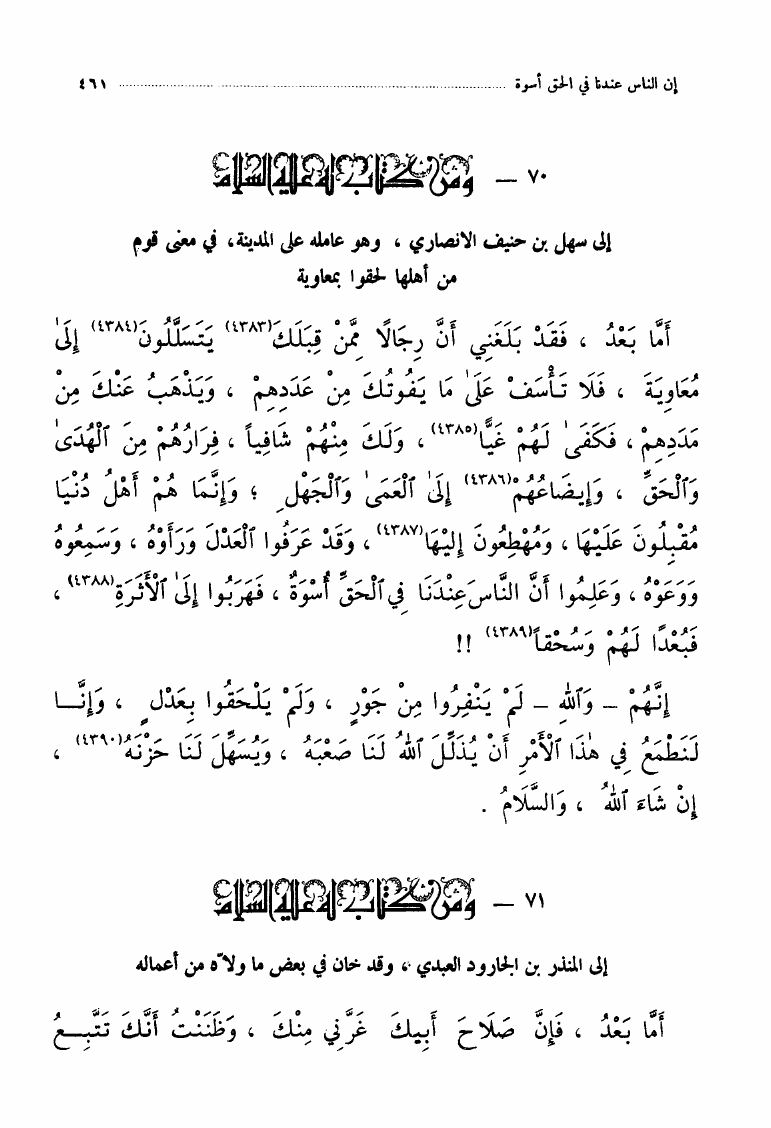 إن الناس عندنا في الحق أسوة ........ ٤٦١
٧٠ – ومن كتاب له عليه السلام
إلى سهل بن حنيف الانصاري ، وهو عامله على المدينة، في معنى قوم
من أهلها لحقوا بمعاوية
أَمَّا بَعْدُ ، فَقَدْ بَلَغَنِي أَنَّ رِجَالًا مِمَّنْ قِبَلَكَ(٤٣٨٣) يَتَسَلَّلُونَ(٤٣٨٤) إِلَىٰ
مُعَاوِيَةَ ، فَلَا تَأْسَفْ عَلَىٰ مَا يَفُوتُكَ مِنْ عَدَدِهِمْ ، وَيَذْهَبُ عَنْكَ مِنْ
مَدَدِهِمْ ، فَكَفَىٰ لَهُمْ غَيًّا(٤٣٨٥) ، وَلَكَ مِنْهُمْ شَافِياً ، فِرَارُهُمْ مِنَ ٱلْهُدَىٰ
وَٱلْحَقِّ ، وَإِيضَاعُهُمْ(٤٣٨٦) إِلَىٰ ٱلْعَمَىٰ وَٱلْجَهْلِ ؛ وَإِنَّمَا هُمْ أَهْلُ دُنْيَا
مُقْبِلُونَ عَلَيْهَا ، وَمُهْطِعُونَ إِلَيْهَا(٤٣٨٧) ، وَقَدْ عَرَفُوا ٱلْعَدْلَ وَرَأَوْهُ ، وَسَمِعُوهُ
وَوَعَوْهُ ، وَعَلِمُوا أَنَّ النَّاسَ عِنْدَنَا فِي ٱلْحَقِّ أُسْوَةٌ ، فَهَرَبُوا إِلَىٰ ٱلْأَثَرَةِ(٤٣٨٨) ،
فَبُعْدًا لَهُمْ وَسُحْقاً(٤٣٨٩) !!
إِنَّهُمْ – وَٱللهِ – لَمْ يَنْفِرُوا مِنْ جَوْرٍ ، وَلَمْ يَلْحَقُوا بِعَدْلٍ ، وَإِنَّـا
لَنَطْمَعُ فِي هٰذَا ٱلْأَمْرِ أَنْ يُذَلِّلَ ٱللهُ لَنَا صَعْبَهُ ، وَيُسَهِّلَ لَنَا حَزْنَهُ(٤٣٩٠) ،
إِنْ شَاءَ ٱللهُ ، وَالسَّلَامُ .
٧١ – ومن كتاب له عليه السلام
إلى المنذر بن الجارود العبدي ، وقد خان في بعض ما ولاّه من أعماله
أَمَّا بَعْدُ ، فَإِنَّ صَلَاحَ أَبِيكَ غَرَّنِي مِنْكَ ، وَظَنَنْتُ أَنَّكَ تَتَّبِـعُ